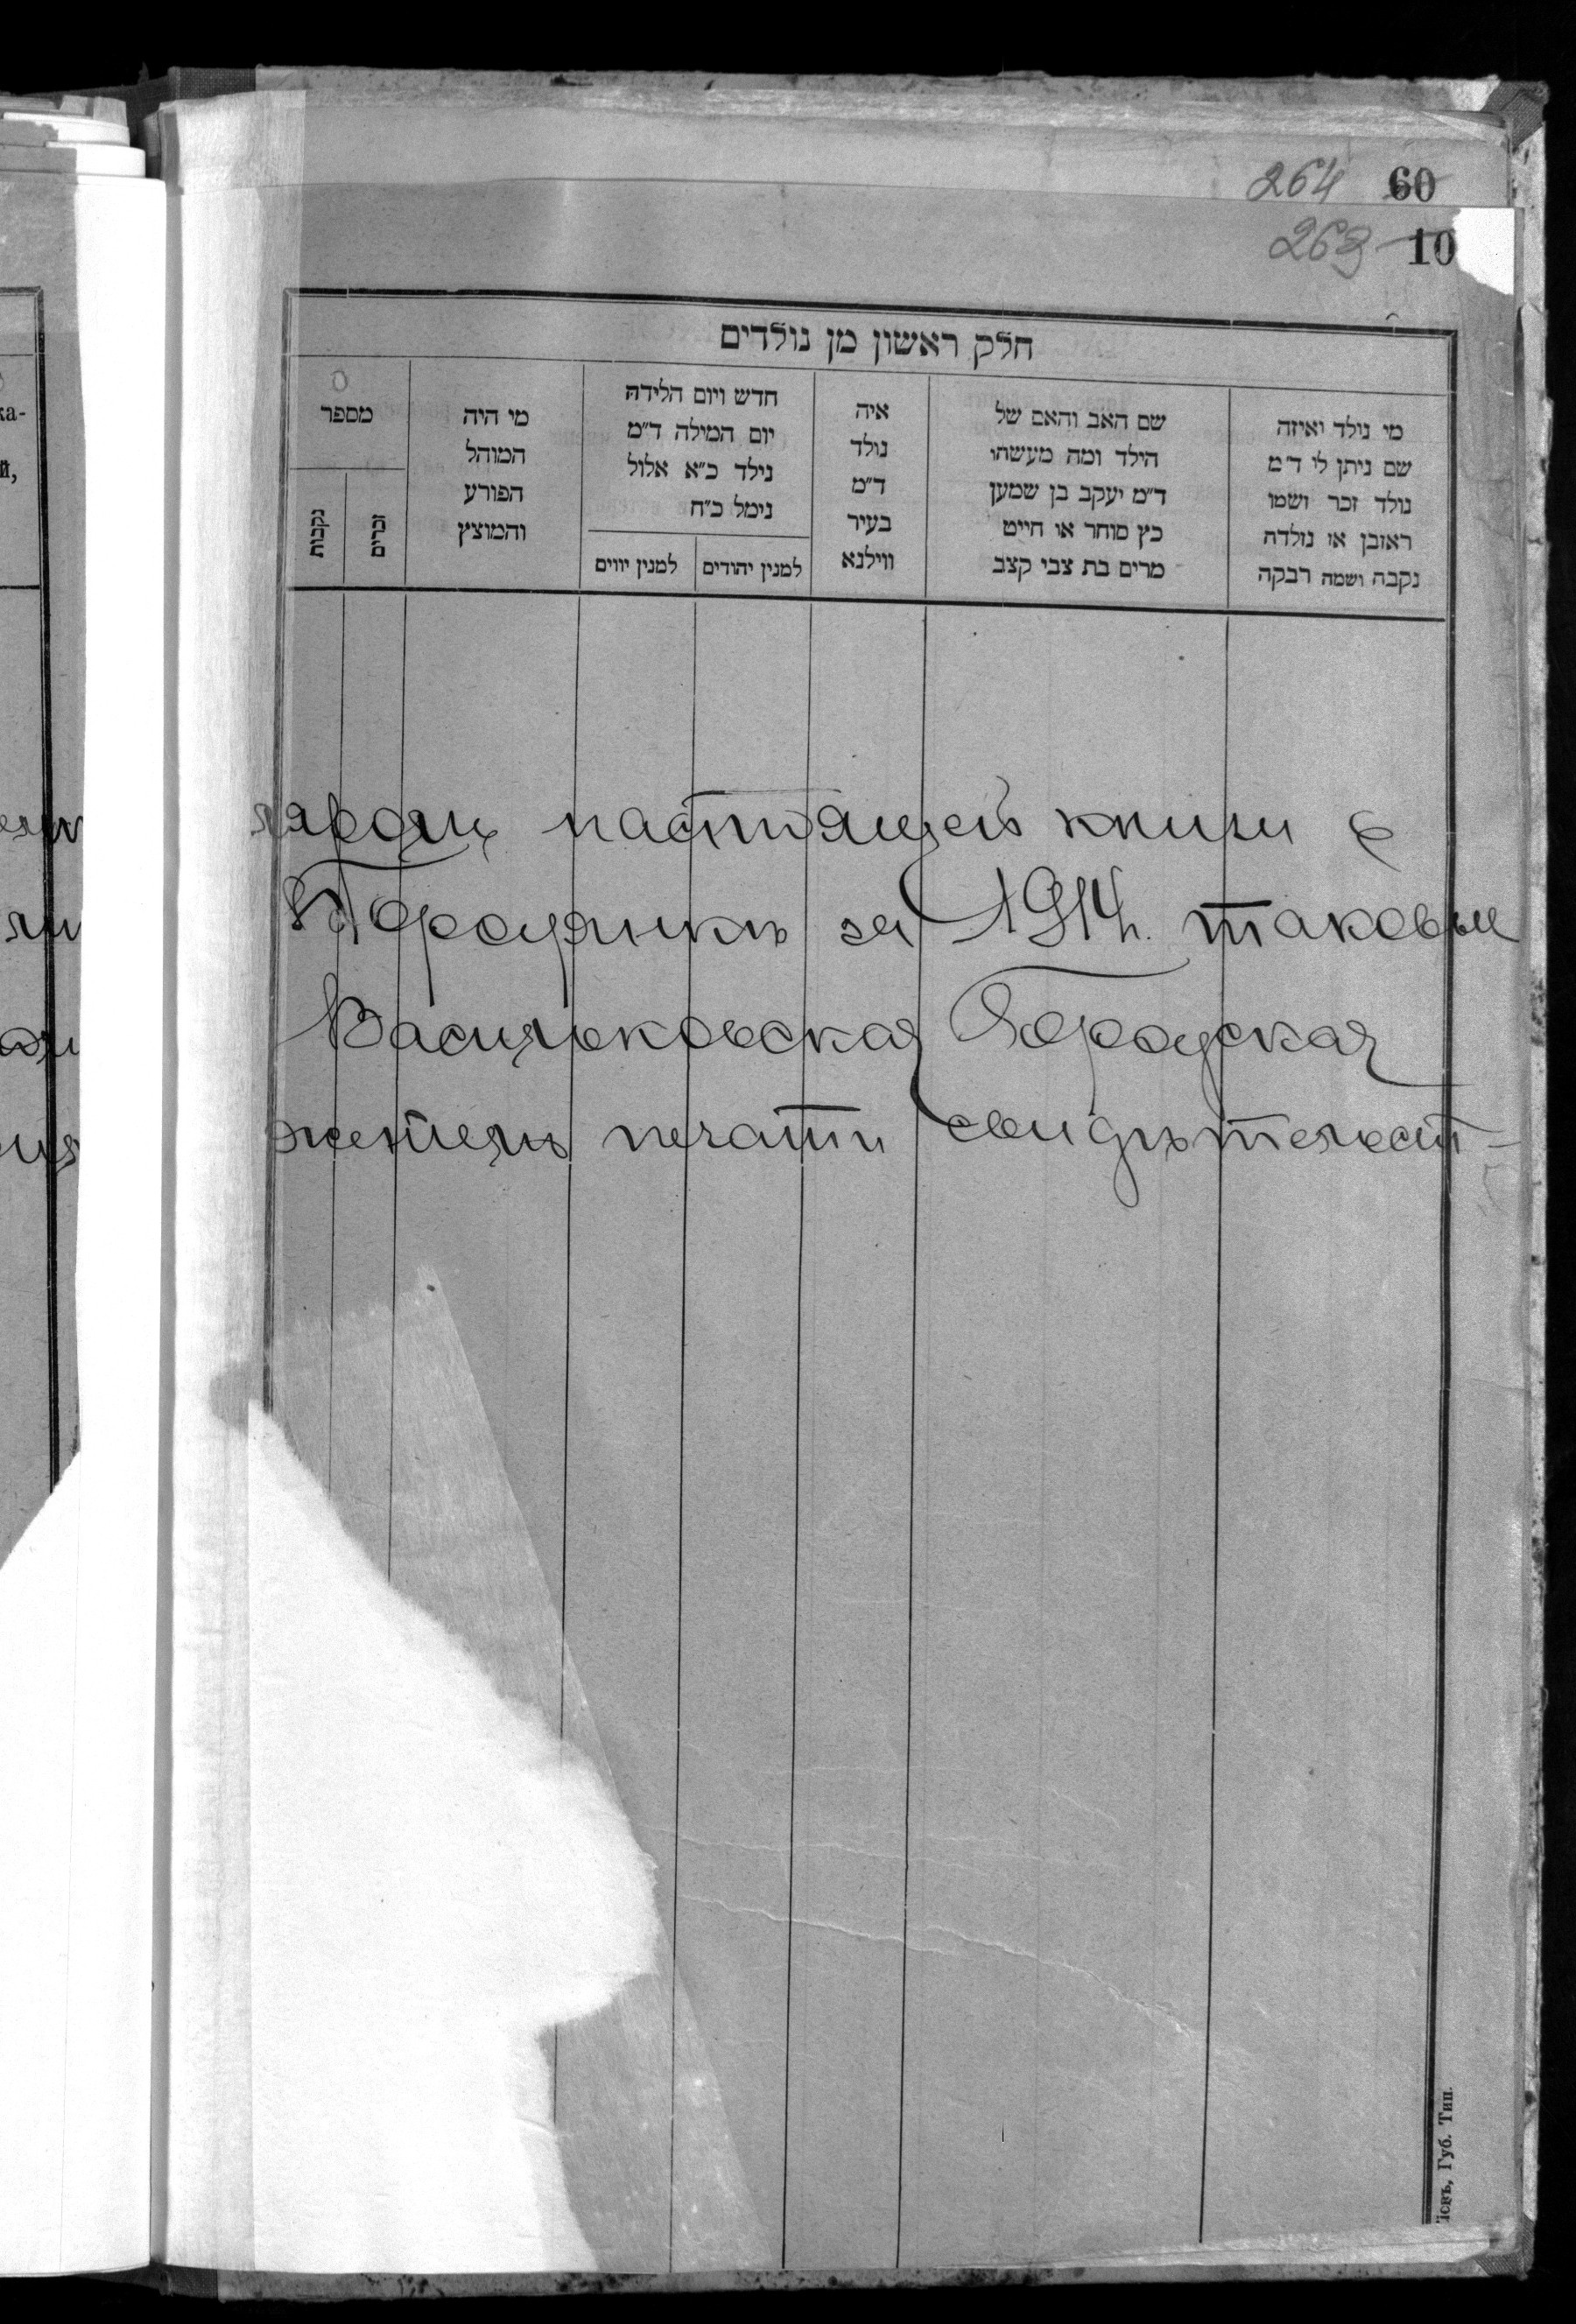 264 60
263 10
חלק ראשון מן נולדים
מי נולד ואיזה
שם ניתן לו ד״מ
נולד זכר ושמו
ראובן או נולדה
נקבה ושמה רבקה
שם האב והאם של
הילד ומה מעשהו
ד״מ יעקב בן שמען
כץ סוחר או חייט
מרים בת צבי קצב
איה
נולד
ד״מ
בעיר
ווילנא
חדש ויום הלידה
יום המילה ד״מ
נילד כ״א אלול
נימל כ״ח
למנין יהודים
למנין יווים
מי היה
המוהל
הפורע
והמוצץ
מספר
זכרים
נקבות
настоящей книги
за 1914 г. таковые
Васильковская Городская
жетемъ печати свидѣтельст-
ка-
й,
іевъ, Губ. Тип.